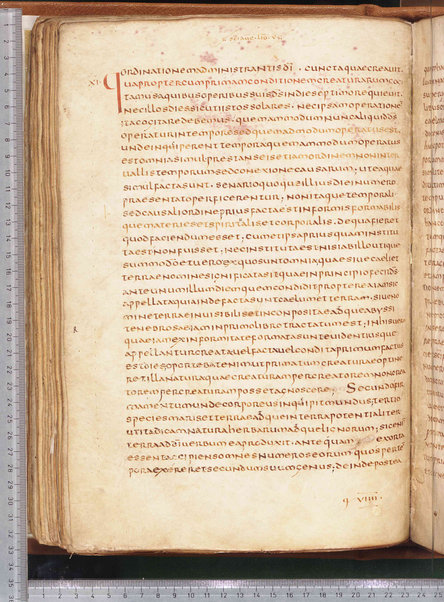 ordinationem administrantis dī · cuncta quae creauit
XI Quapropter cum primam conditionem creaturarum cogi
tamus a quibus operibus suis d̄s in die septimo requieuit
nec illos dies sicut istos solares · nec ipsam operationē
ita cogitare debemus · quemadmodum nunc aliquid d̄s
operatur in tempore sed quemadmodum operatus est
unde inciperent tempora quemadmodum operatus
est omnia simul prestans eis etiam ordinem non inter
uallis temporum sed conexione causarum · ut ea quae
simul facta sunt · senario quoque illius diei numero
praesentato perficerentur · non itaque temporali
sed causali ordine prius facta est informis formabilis
que materies et spiritalis et corporalis · de qua fieret
quod faciendum esset · cum et ipsa priusquam institu
ta est non fuisset · nec instituta est nisi ab illo utique
summo dō et uero ex quo sunt omnia quae siue caeli et
terrae nomine significata est quae in principio fecit d̄s
ante unum illum diem quem condidit propterea iam sic
appellata quia inde facta sunt caelum et terra · siue no
mine terrae inuisibilis et inconpositae adque abyssi
tenebrosae iam in primo libro tractatum est · in his uero
quae iam ex informitate formata sunt euidentiusque
appellantur creata uel facta uel condita primum factus
est dies oportebat enim ut primatum creaturae optine
ret illa natura quae creaturam per creatorem non crea
torem per creaturam posset agnoscere · Secundo fir
mamentum unde corporeus incipit mundus · tertio
species maris et terrae adque in terra potentialiter
ut ita dicam natura herbarum adque lignorum · sic enī
terra ad dī uerbum ea produxit · ante quam exorta
essent accipiens omnes numeros eorum quos per tē
pora exereret secundum suum genus · deinde postea
q VIIII